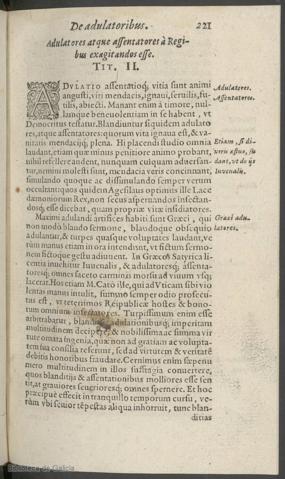 De adulatoribus. 221
Adulatores atque assentatores à Regi-
bus exagitandos esse.
TIT. II.
ADVLATIO assentatioq́; vitia sunt animi
angusti, viri mendacis, ignaui, seruilis, fu-
tilis, abiecti. Manant enim à timore, nul-
lamque beneuolentiam in se habent, vt
Democritus testatur. Blandiuntur siquidem adulato
res, atque assentatores: quorum vita ignaua est, & va-
nitatis mendacijq́; plena. Hi placendi studio omnia
laudant, etiam quæ minus penitiore animo probant,
nihil refellere audent, nunquam cuiquam aduersan-
tur, nemini molesti sunt, mendacia veris concinnant,
simulando quoque ac dissimulando semper verum
occultant: quos quidem Agesilaus optimus ille Lace
dæmoniorum Rex, non secus aspernandos insectan-
dosq́; esse dicebat, quam propriæ vitæ insidiatores.
Maximi adulandi artifices habiti sunt Græci, qui
non modò blando sermone, blandoque obsequio
adulantur, & turpes quasque voluptates laudant, ve
rùm manus etiam in ora intendunt, vt fictum sermo-
nem fictoque gestu adiuuent. In Græcos Satyrica li-
centia inuehitur Iuuenalis, & adulatores q́; assenta-
toresq́; omnes faceto carmini morsu ad viuum vsq;
lacerat. Hos etiam M. Cato ille, qui ad Vticam sibi vio
lentas manus intulit, summo semper odio prosecu-
tus est, vt teterrimos Reipublicæ hostes & bono-
rum omnium insectatores. Turpissimum enim esse
arbitrabatur, blandis adulationibusq́; imperitam
multitudinem decipere, & nobilissima ac summa vir
tute ornata ingenia, quæ non ad gratiam ac volupta-
tem sua consilia referunt, sed ad virtutem & veritatē
debitis honoribus fraudare. Cernimus enim sæpenu
mero multitudinem in illos suffragia conuertere,
quos blanditijs & assentationibus molliores esse sen
tit, at grauiores seuerioresq́; omnes spernere. Et hoc
præcipuè effecit in tranquillo temporum cursu, ve-
rùm vbi sæuior tēpestas aliqua inhorruit, tunc blan-
ditias
Adulatores.
Assentatores.
Iuuenalis.
Græci adu-
latores.
Biblioteca de Galicia